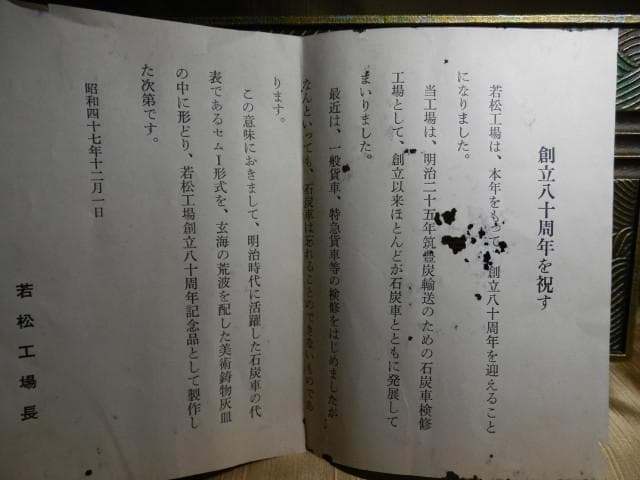 創立八十周年を祝す
若松工場は、本年をもって、創立八十周年を迎えること
になりました。
当工場は、明治二十五年筑豊炭輸送のための石炭車検修
工場として、創立以来ほとんどが石炭車とともに発展して
まいりました。
最近は、一般貨車、特急貨車等の検修をはじめましたが
なんといっても、石炭車は忘れることのできないものであ
ります。
この意味におきまして、明治時代に活躍した石炭車の代
表であるセムⅠ形式を、玄海の荒波を配した美術鋳物灰皿
の中に形どり、若松工場創立八十周年記念品として製作し
た次第です。
昭和四十七年十二月一日
若松工場長